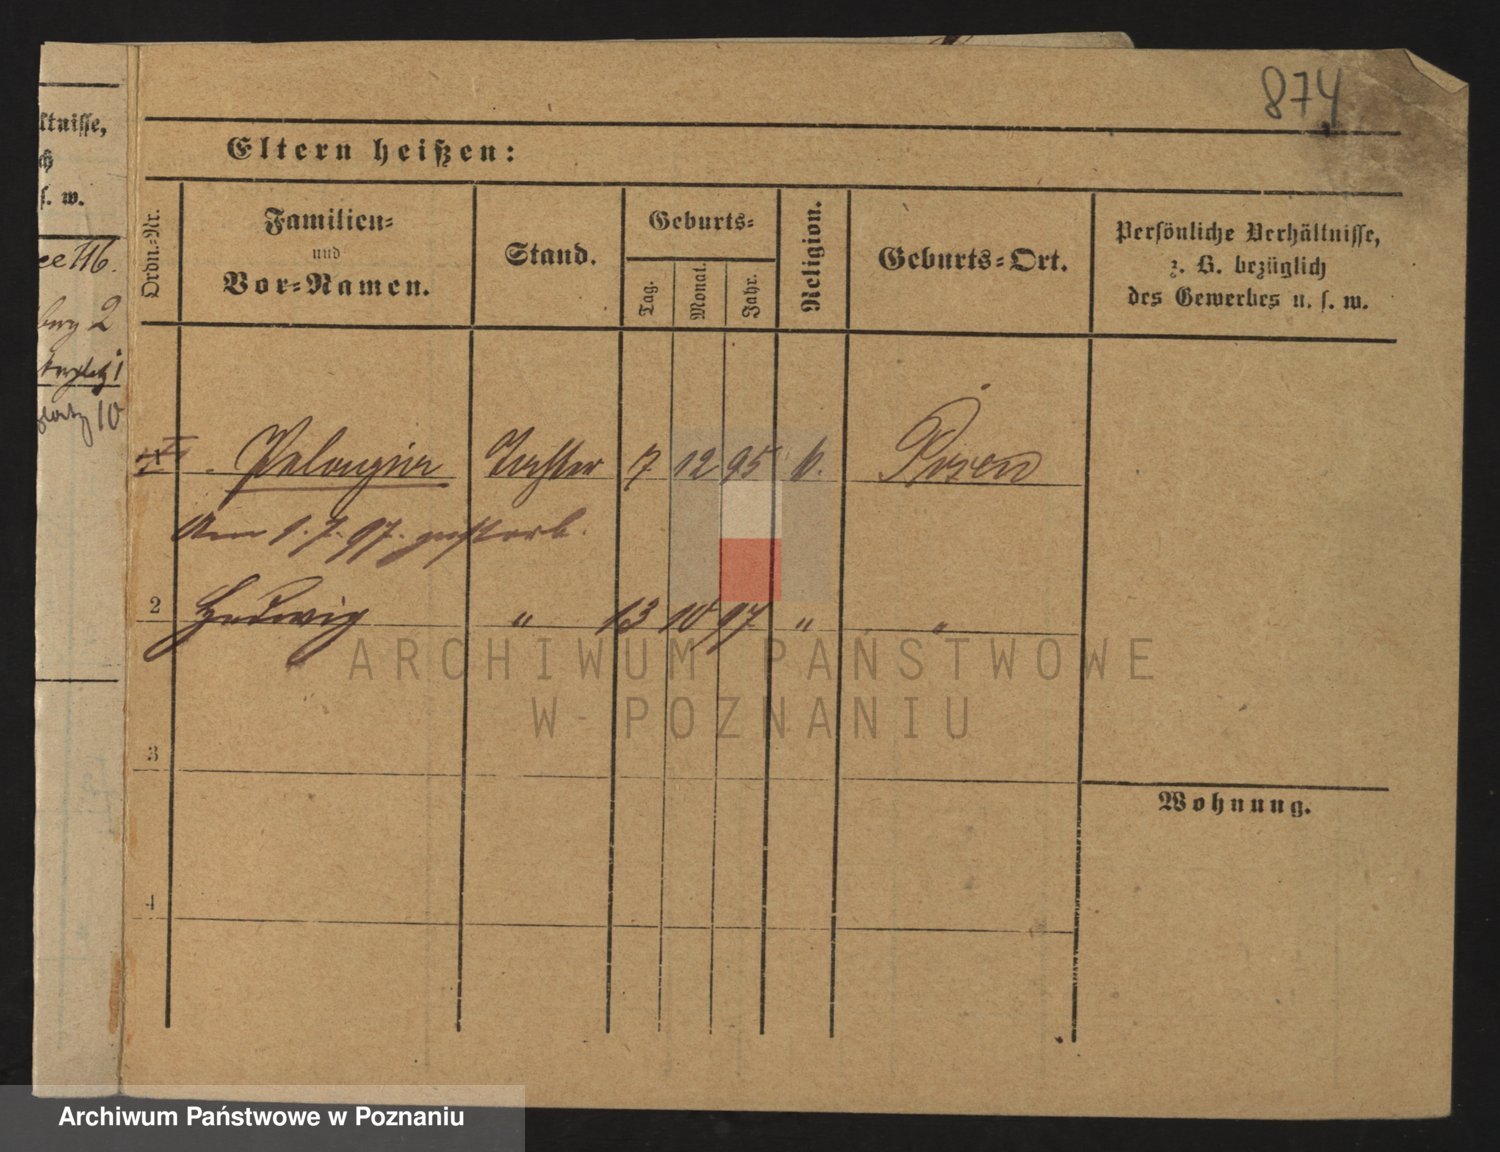 874
ltnisse,
ch
s. w.
Eltern heißen:
Ordn.-Nr.
Familien-
und
Vor-Namen.
Stand.
Geburts-
Tag.
Monat.
Jahr.
Religion.
Geburts-Ort.
Persönliche Verhältnisse,
z. B. bezüglich
des Gewerbes u. s. w.
116.
berg 2
10
Pelagia Tochter 7 12 95 k. Posen
Am 1.7.97. gestorb.
2 Hedwig " 13 10 97 " "
ARCHIWUM PAŃSTWOWE
W POZNANIU
3
Wohnung.
4
Archiwum Państwowe w Poznaniu